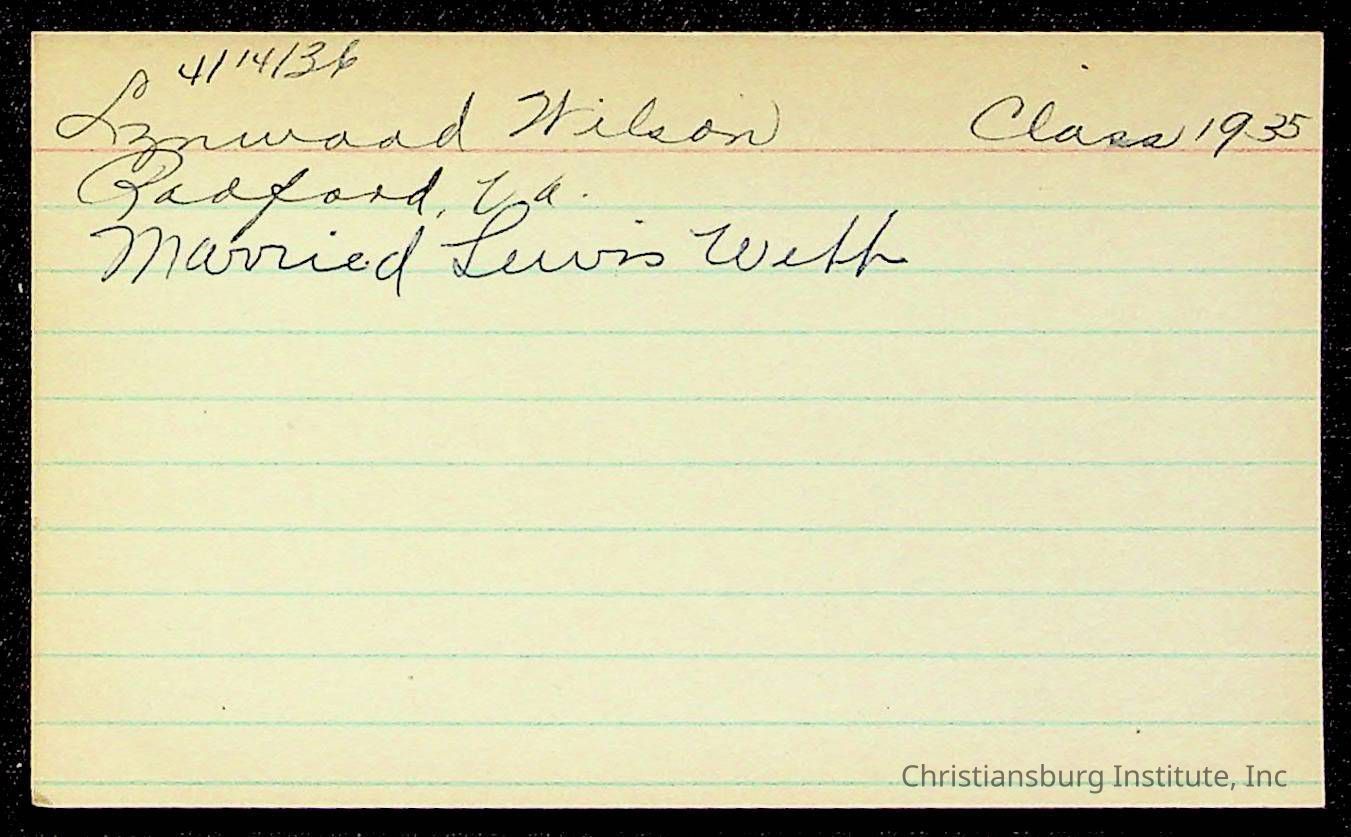 4/14/36
Lynwood Wilson Class 1935
Radford, Va.
Married Lewis Webb
Christiansburg Institute, Inc